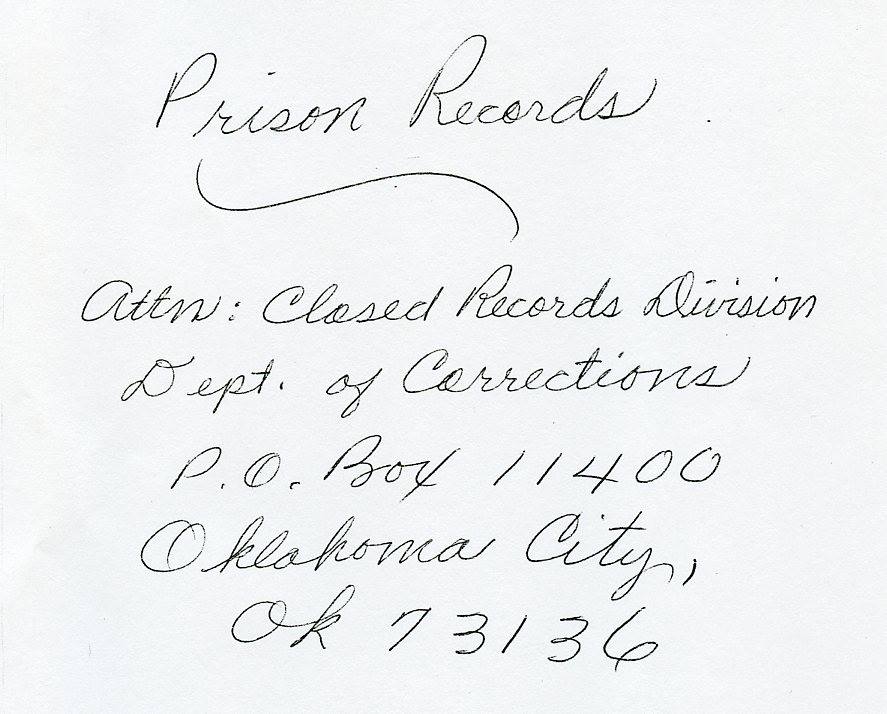 Prison Records
Attn: Closed Records Division
Dept. of Corrections
P.O. Box 11400
Oklahoma City,
Ok 73136